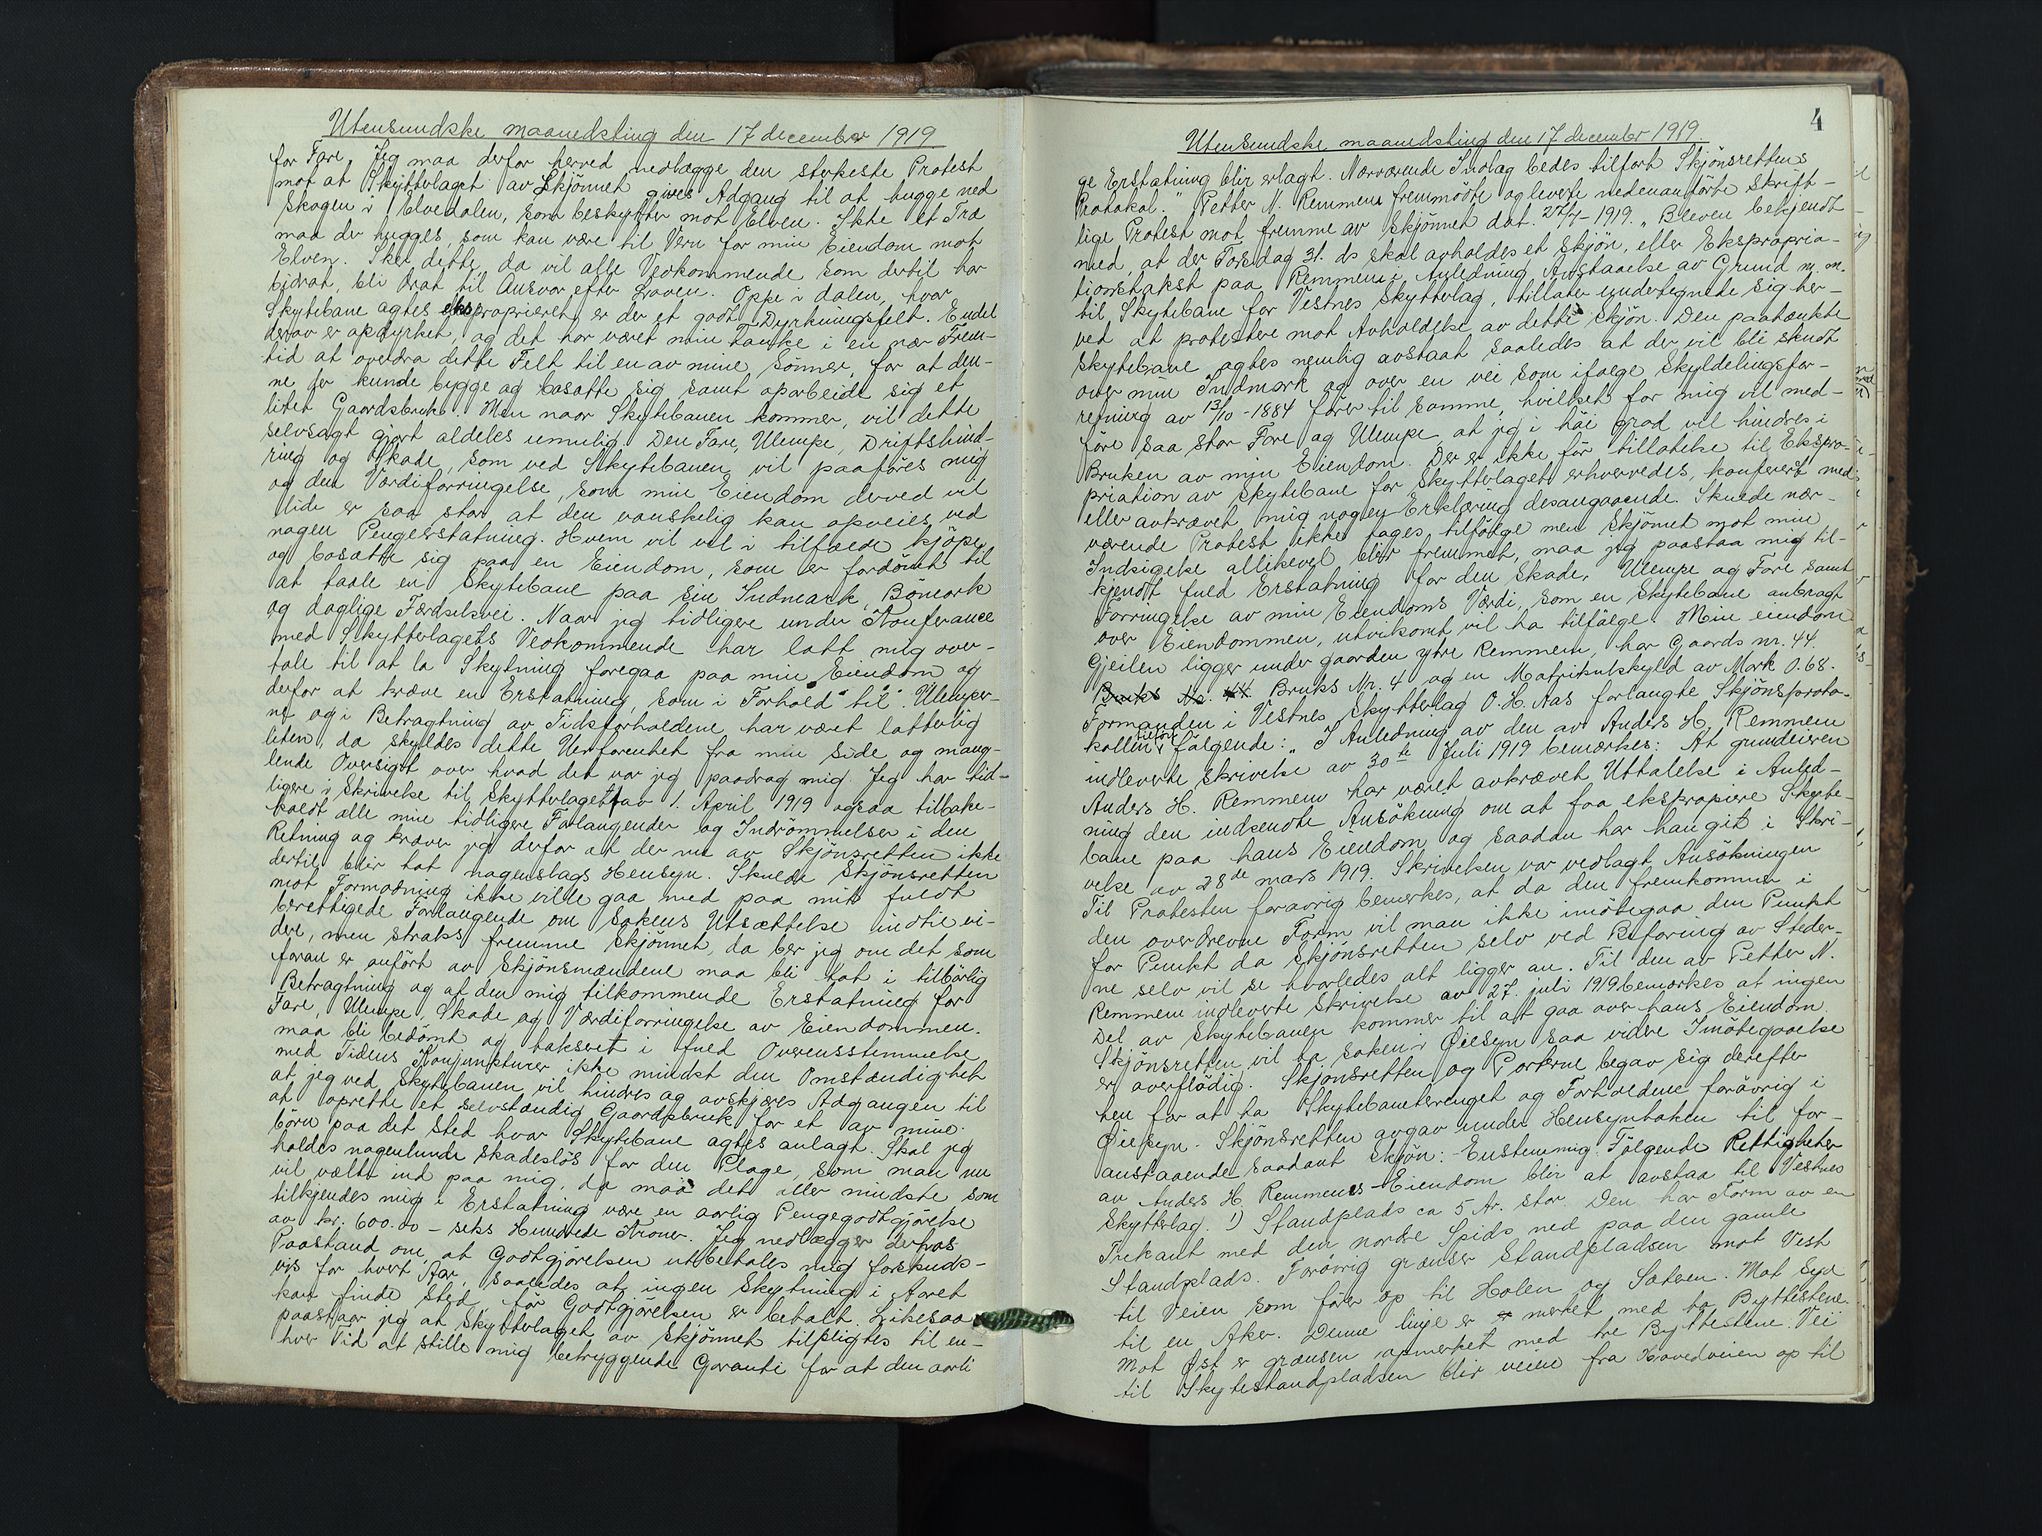 Utensundske maanedsting den 17 december 1919
for Fare. Jeg maa derfor herved nedlægge den sterkeste Protest
mot at Skytterlaget av Skjønnet gives Adgang til at hugge ned
Skogen i Elvedalen, som beskytter mot Elven. Ikke et Træ
maa der hugges, som kan være til Vern for min Eiendom mot
Elven. Sker dette, da vil alle Vedkommende som dertil har
bidrat, bli drat til Ansvar efter Loven. Oppe i dalen, hvor
Skytebane agtes eksproprieret, er der et godt Dyrkningsfelt. Endel
derav er opdyrket, og det har været min Tanke i en nær Frem-
tid at overdra dette Felt til en av mine Sønner, for at den-
ne der kunde bygge og bosætte sig samt oparbeide sig et
litet Gaardsbruk. Men naar Skytebanen kommer, vil dette
selvsagt gjørt aldeles umulig. Den Fare, Ulempe, Driftshind-
ring og Skade, som ved Skytebanen vil paaføres mig
og den Værdiforringelse, som min Eiendom derved vil
lide er saa stor at den vanskelig kan opveies ved
nogen Pengeerstatning. Hvem vil vel i tilfælde kjøpe
og bosætte sig paa en Eiendom, som er fordømt til
at taale en Skytebane paa sin Indmark, Bømark
og daglige Færdselsvei. Naar jeg tidligere under Konferanse
med Skytterlagets Vedkommende har latt mig over-
tale til at la Skytning foregaa paa min Eiendom og
derfor at kræve en Erstatning, som i Forhold til Ulemper-
ne og i Betragtning av Tidsforholdene, har været latterlig
liten, da skyldes dette Uerfarenhet fra min side og mang-
lende Oversigt over hvad det var jeg paadrog mig. Jeg har tid-
ligere i Skrivelse til Skytterlaget av 1. April 1919 ogsaa tilbake-
kaldt alle mine tidligere Forlangender og Indrømmelser i den
Retning og kræver jeg derfor at der nu av Skjønsretten ikke
dertil blir tat nogenslags Hensyn. Skulde Skjønsretten
mot Formodning ikke ville gaa med paa mit fuldt
berettigede Forlangende om Sakens Utsættelse indtil vi-
dere, men straks fremme Skjønnet, da ber jeg om det som
foran er anført av Skjønsmændene maa bli tat i tilbørlig
Betragtning og at den mig tilkommende Erstatning for
Fare, Ulempe, Skade og Værdiforringelse av Eiendommen.
maa bli bedømt og takseret i fuld Overensstemmelse
med Tidens Konjunkturer ikke mindst den Omstændighet
at jeg ved Skytebanen vil hindres og avskjæres Adgangen til
at oprette et selvstændig Gaardsbruk for et av mine
børn paa det Sted hvor Skytebane agtes anlagt. Skal jeg
holdes nogenlunde skadesløs for den Plage, som man nu
vil vælte ind paa mig, da maa det aller mindste som
tilkjendes mig i Erstatning være en aarlig Pengegodtgjørelse
av kr. 600.00 - seks Hundrede Kroner. Jeg nedlægger derfor
Paastand om, at Godtgjørelsen utbetales mig forskuds-
vis for hvert Aar, saaledes at ingen Skytning i Aaret
kan finde Sted før Godtgjørelsen er betalt. Likesaa
paastaar jeg at Skytterlaget av Skjønnet tilpligtes til en-
hver Tid at stille mig betryggende Garanti for at den aarli
4
Utensundske maanedsting den 17 december 1919.
ge Erstatning blir erlagt. Nærværende Indlæg bedes tilført Skjønsrettens
Protokol." Petter N. Remmem fremmødte og leverte nedenanførte skrift-
lige Protest mot fremme av Skjønnet dat. 27/7-1919. "Bleven bekjendt
med, at der Torsdag 31. ds skal avholdes et skjøn, eller Ekspropria-
tionstakst paa Remmem i Anledning Avstaaelse av Grund m.m.
til Skytebane for Vestnes Skytterlag, tillater undertegnede sig her-
ved at protestere mot Avholdelse av dette skjøn. Den paatænkte
Skytebane agtes nemlig avstaat saaledes at der vil bli skudt
over min Indmark og over en vei som ifølge Skyldelingsfor-
retning av 13/10-1884 fører til samme, hvilket for mig vil med-
føre saa stor Fare og Ulempe, at jeg i høi grad vil hindres i
Bruken av min Eiendom. Der er ikke før tillatelse til Ekspro-
priation av Skytebane for Skytterlaget erhvervedes, konferert med
eller avkrævet mig nogen Erklæring desangaaende. Skulde nær-
værende Protest ikke tages tilfølge men Skjønnet mot min
Indsigelse allikevel blir fremmet, maa jeg paastaa mig til-
kjendt fuld Erstatning for den Skade, Ulempe og Fare samt
Forringelse av min Eiendoms Værdi, som en Skytebane anbragt
over Eiendommen, utvilsomt vil ha tilfølge. Min eiendom
Gjeilen ligger under gaarden ytre Remmem, har Gaards nr. 44.
Bruks No. 44 Bruks Nr. 4 og en Matrikulskyld av Mark 0.68.
Formanden i Vestnes Skytterlag O. H. Aas forlangte Skjønsproto-
kollen tilført følgende: "I Anledning av den av Anders H. Remmem
indleverte skrivelse av 30te Juli 1919 bemærkes: At grundeieren
Anders H. Remmem har været avkrævet Uttalelse i Anled-
ning den indsendte Ansøkning om at faa ekspropiere Skyte-
bane paa hans Eiendom og saadan har han git i Skri-
velse av 28de mars 1919. Skrivelsen var vedlagt Ansøkningen
Til Protesten forøvrig bemerkes, at da den fremkommer i
den overdrevne Form vil man ikke imøtegaa den Punkt
for Punkt da Skjønsretten selv ved Befaring av Steder-
ne selv vil se hvorledes alt ligger an. Til den av Petter N.
Remmem indleverte skrivelse av 27. juli 1919 bemærkes at ingen
Del av Skytebanen kommer til at gaa over hans Eiendom.
Skjønsretten vil ta saken i Øiesyn saa videre Imøtegaaelse
er overflødig. Skjønsretten og Parterne begav sig derefter
hen for at ta Skytebaneterrænget og Forholdene forøvrig i
Øiesyn. Skjønsretten avgav under Hensyntaken til for-
anstaaende saadant Skjøn: Enstemmig. Følgende Rettigheter
av Anders H. Remmems Eiendom blir at avstaa til Vestnes
Skytterlag. 1) Standplads ca 5 Ar. stor. Den har Form av en
Trekant med den nordre Spids ned paa den gamle
Standplads. Forøvrig grænser Standpladsen mot Vest
til Veien som fører op til Holen og Sætren. Mot Syd
til en Aker. Denne linje er merket med to Byttestene.
Mot Øst er grænsen opmerket med tre Byttestene. Vei
til Skytestandpladsen blir veien fra Hovedveien op til